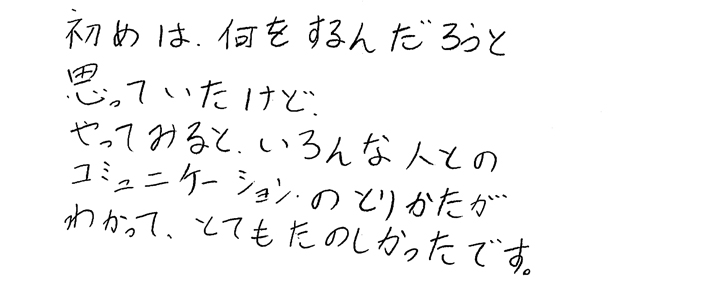 初めは、何をするんだろうと
思っていたけど、
やってみると、いろんな人との
コミュニケーション、のとりかたが
わかって、とてもたのしかったです。